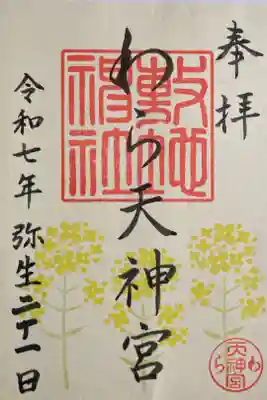 奉拝
敷地神社
わら天神宮
令和七年 弥生二十一日
わら天神宮